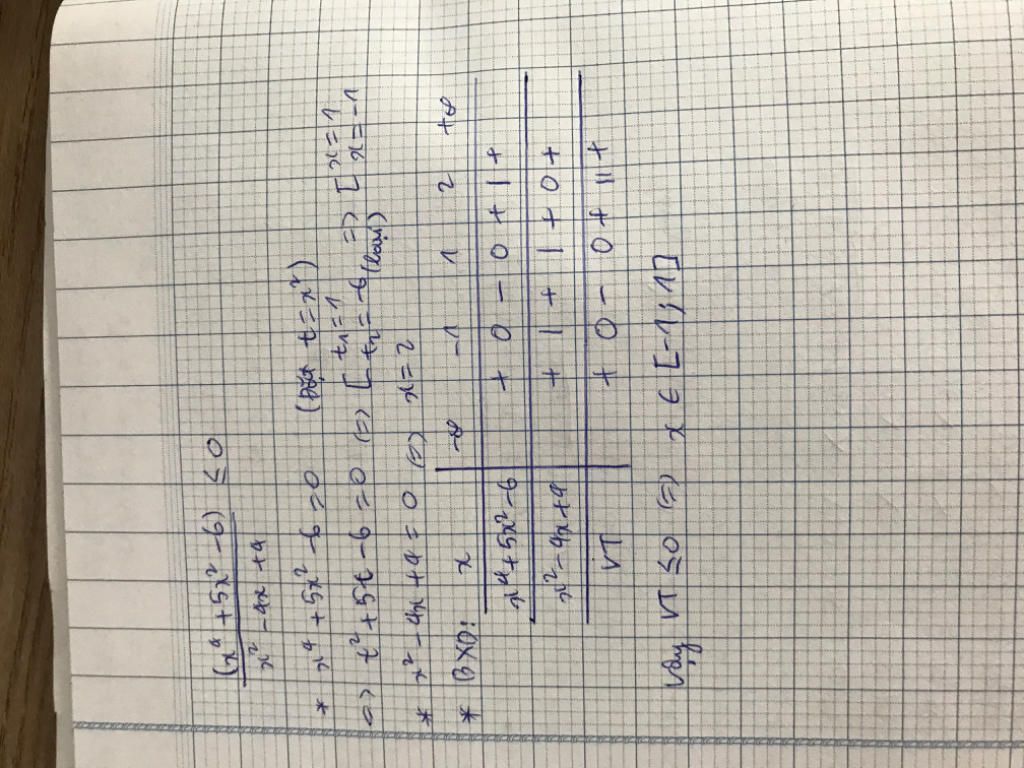 (x⁴ + 5x² - 6) / (x² - 4x + 4) ≤ 0
* x⁴ + 5x² - 6 = 0 (Đặt t = x²)
=> t² + 5t - 6 = 0 (=) [ t₁ = 1 ; t₂ = -6 (loại) => [ x = 1 ; x = -1
* x² - 4x + 4 = 0 (=) x = 2
* BXD: x -∞ -1 1 2 +∞
x⁴ + 5x² - 6 + 0 - 0 + | +
x² - 4x + 4 + | + | + 0 +
VT + 0 - 0 + || +
Vậy VT ≤ 0 (=) x ∈ [-1; 1]